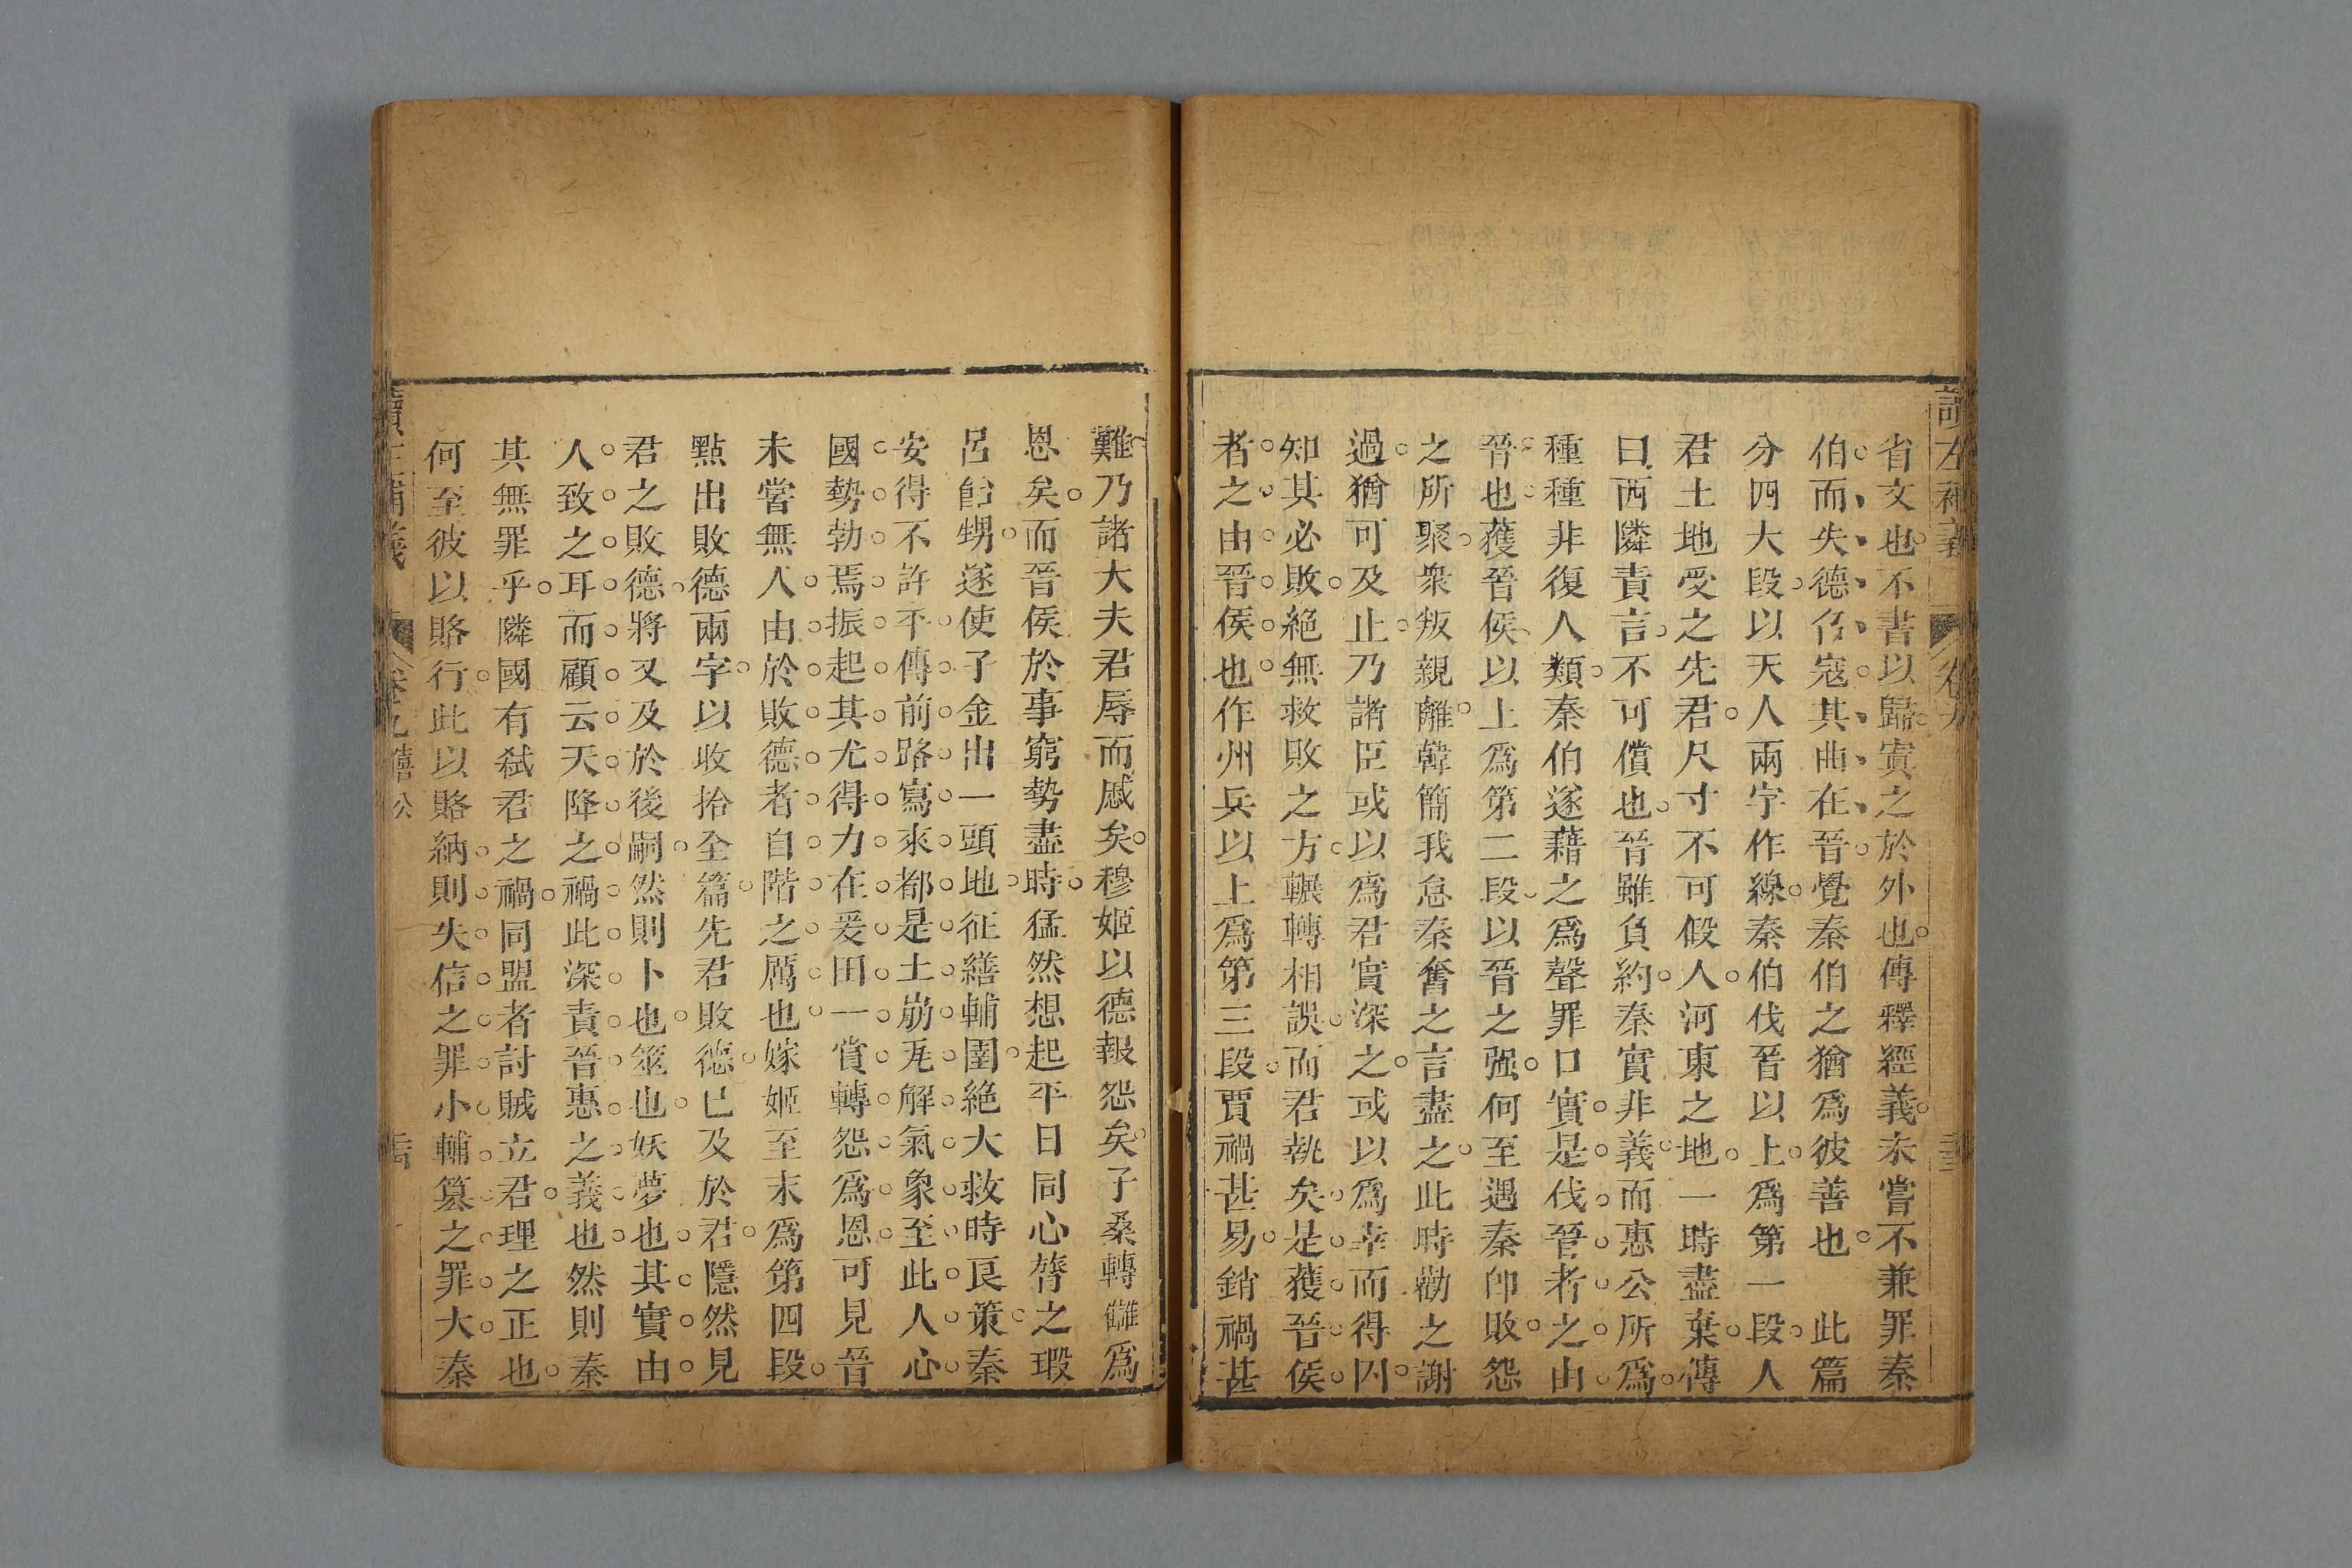 讀左補義 卷九
省文也不書以歸實之於外也傳釋經義未嘗不兼罪秦
伯而失德召寇其曲在晉覺秦伯之猶爲彼善也 此篇
分四大段以天人兩字作線秦伯伐晉以上爲第一段人
君土地受之先君尺寸不可假人河東之地一時盡棄傳
曰西隣責言不可償也晉雖負約秦實非義而惠公所爲
種種非復人類秦伯遂藉之爲聲罪口實是伐晉者之由
晉也獲晉侯以上爲第二段以晉之强何至遇秦卽敗怨
之所聚衆叛親離韓簡我怠秦奮之言盡之此時勸之謝
過猶可及止乃諸臣或以爲君實深之或以爲幸而得囚
知其必敗絕無救敗之方輾轉相誤而君執矣是獲晉侯
者之由晉侯也作州兵以上爲第三段賈禍甚易銷禍甚
難乃諸大夫君辱而慼矣穆姬以德報怨矣子桑轉讎爲
恩矣而晉侯於事窮勢盡時猛然想起平日同心膂之瑕
呂飴甥遂使子金出一頭地征繕輔圉絕大救時良策秦
安得不許平傳前路寫來都是土崩瓦解氣象至此人心
國勢勃焉振起其尤得力在爰田一賞轉怨爲恩可見晉
未嘗無人由於敗德者自階之厲也嫁姬至末爲第四段
點出敗德兩字以收拾全篇先君敗德已及於君隱然見
君之敗德將又及於後嗣然則卜也筮也妖夢也其實由
人致之耳而顧云天降之禍此深責晉惠之義也然則秦
其無罪乎隣國有弑君之禍同盟者討賊立君理之正也
何至彼以賂行此以賂納則失信之罪小輔簒之罪大秦
讀左補義 卷九 僖公